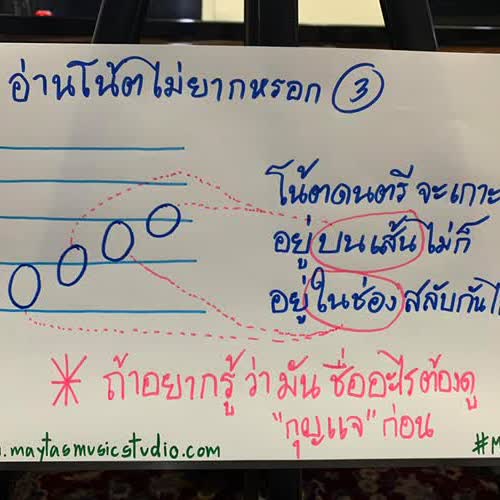 อ่านโน้ตไม่ยากหรอก 3
โน้ตดนตรี จะเกาะ
อยู่บนเส้น ไม่ก็
อยู่ในช่อง สลับกัน
* ถ้าอยากรู้ ว่า มัน ชื่ออะไรต้องดู
"กุญแจ" ก่อน
.maytasmusicstudio.com
#M